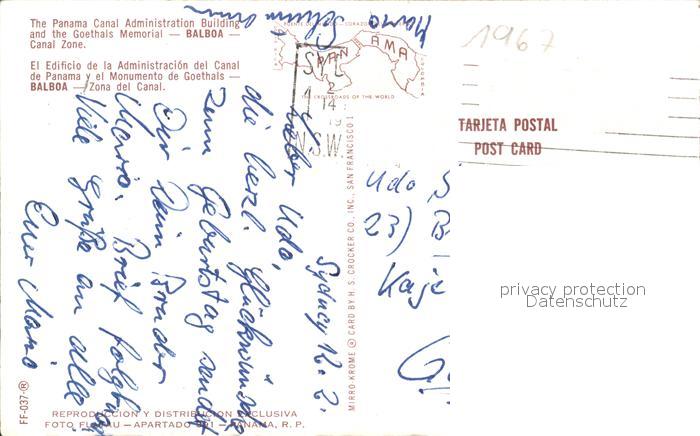 The Panama Canal Administration Building
and the Goethals Memorial — BALBOA —
Canal Zone.
El Edificio de la Administración del Canal
de Panama y el Monumento de Goethals —
BALBOA — Zona del Canal.
PANAMA
THE CROSSROADS OF THE WORLD
1967
TARJETA POSTAL
POST CARD
N.S.W.
Sydney 12. 2.
Lieber Udo,
die herzl. Glückwünsche
zum Geburtstag sendet
Dir Dein Bruder
Mario. Brief folgt.
Viele Grüße an alle
Euer Mario
Udo S
23) B
Kaje
MIRRO-KROME ® CARD BY H. S. CROCKER CO., INC., SAN FRANCISCO 1
FF-037-®
REPRODUCCION Y DISTRIBUCION EXCLUSIVA
FOTO FLATAU — APARTADO 391 — PANAMA, R. P.
privacy protection
Datenschutz